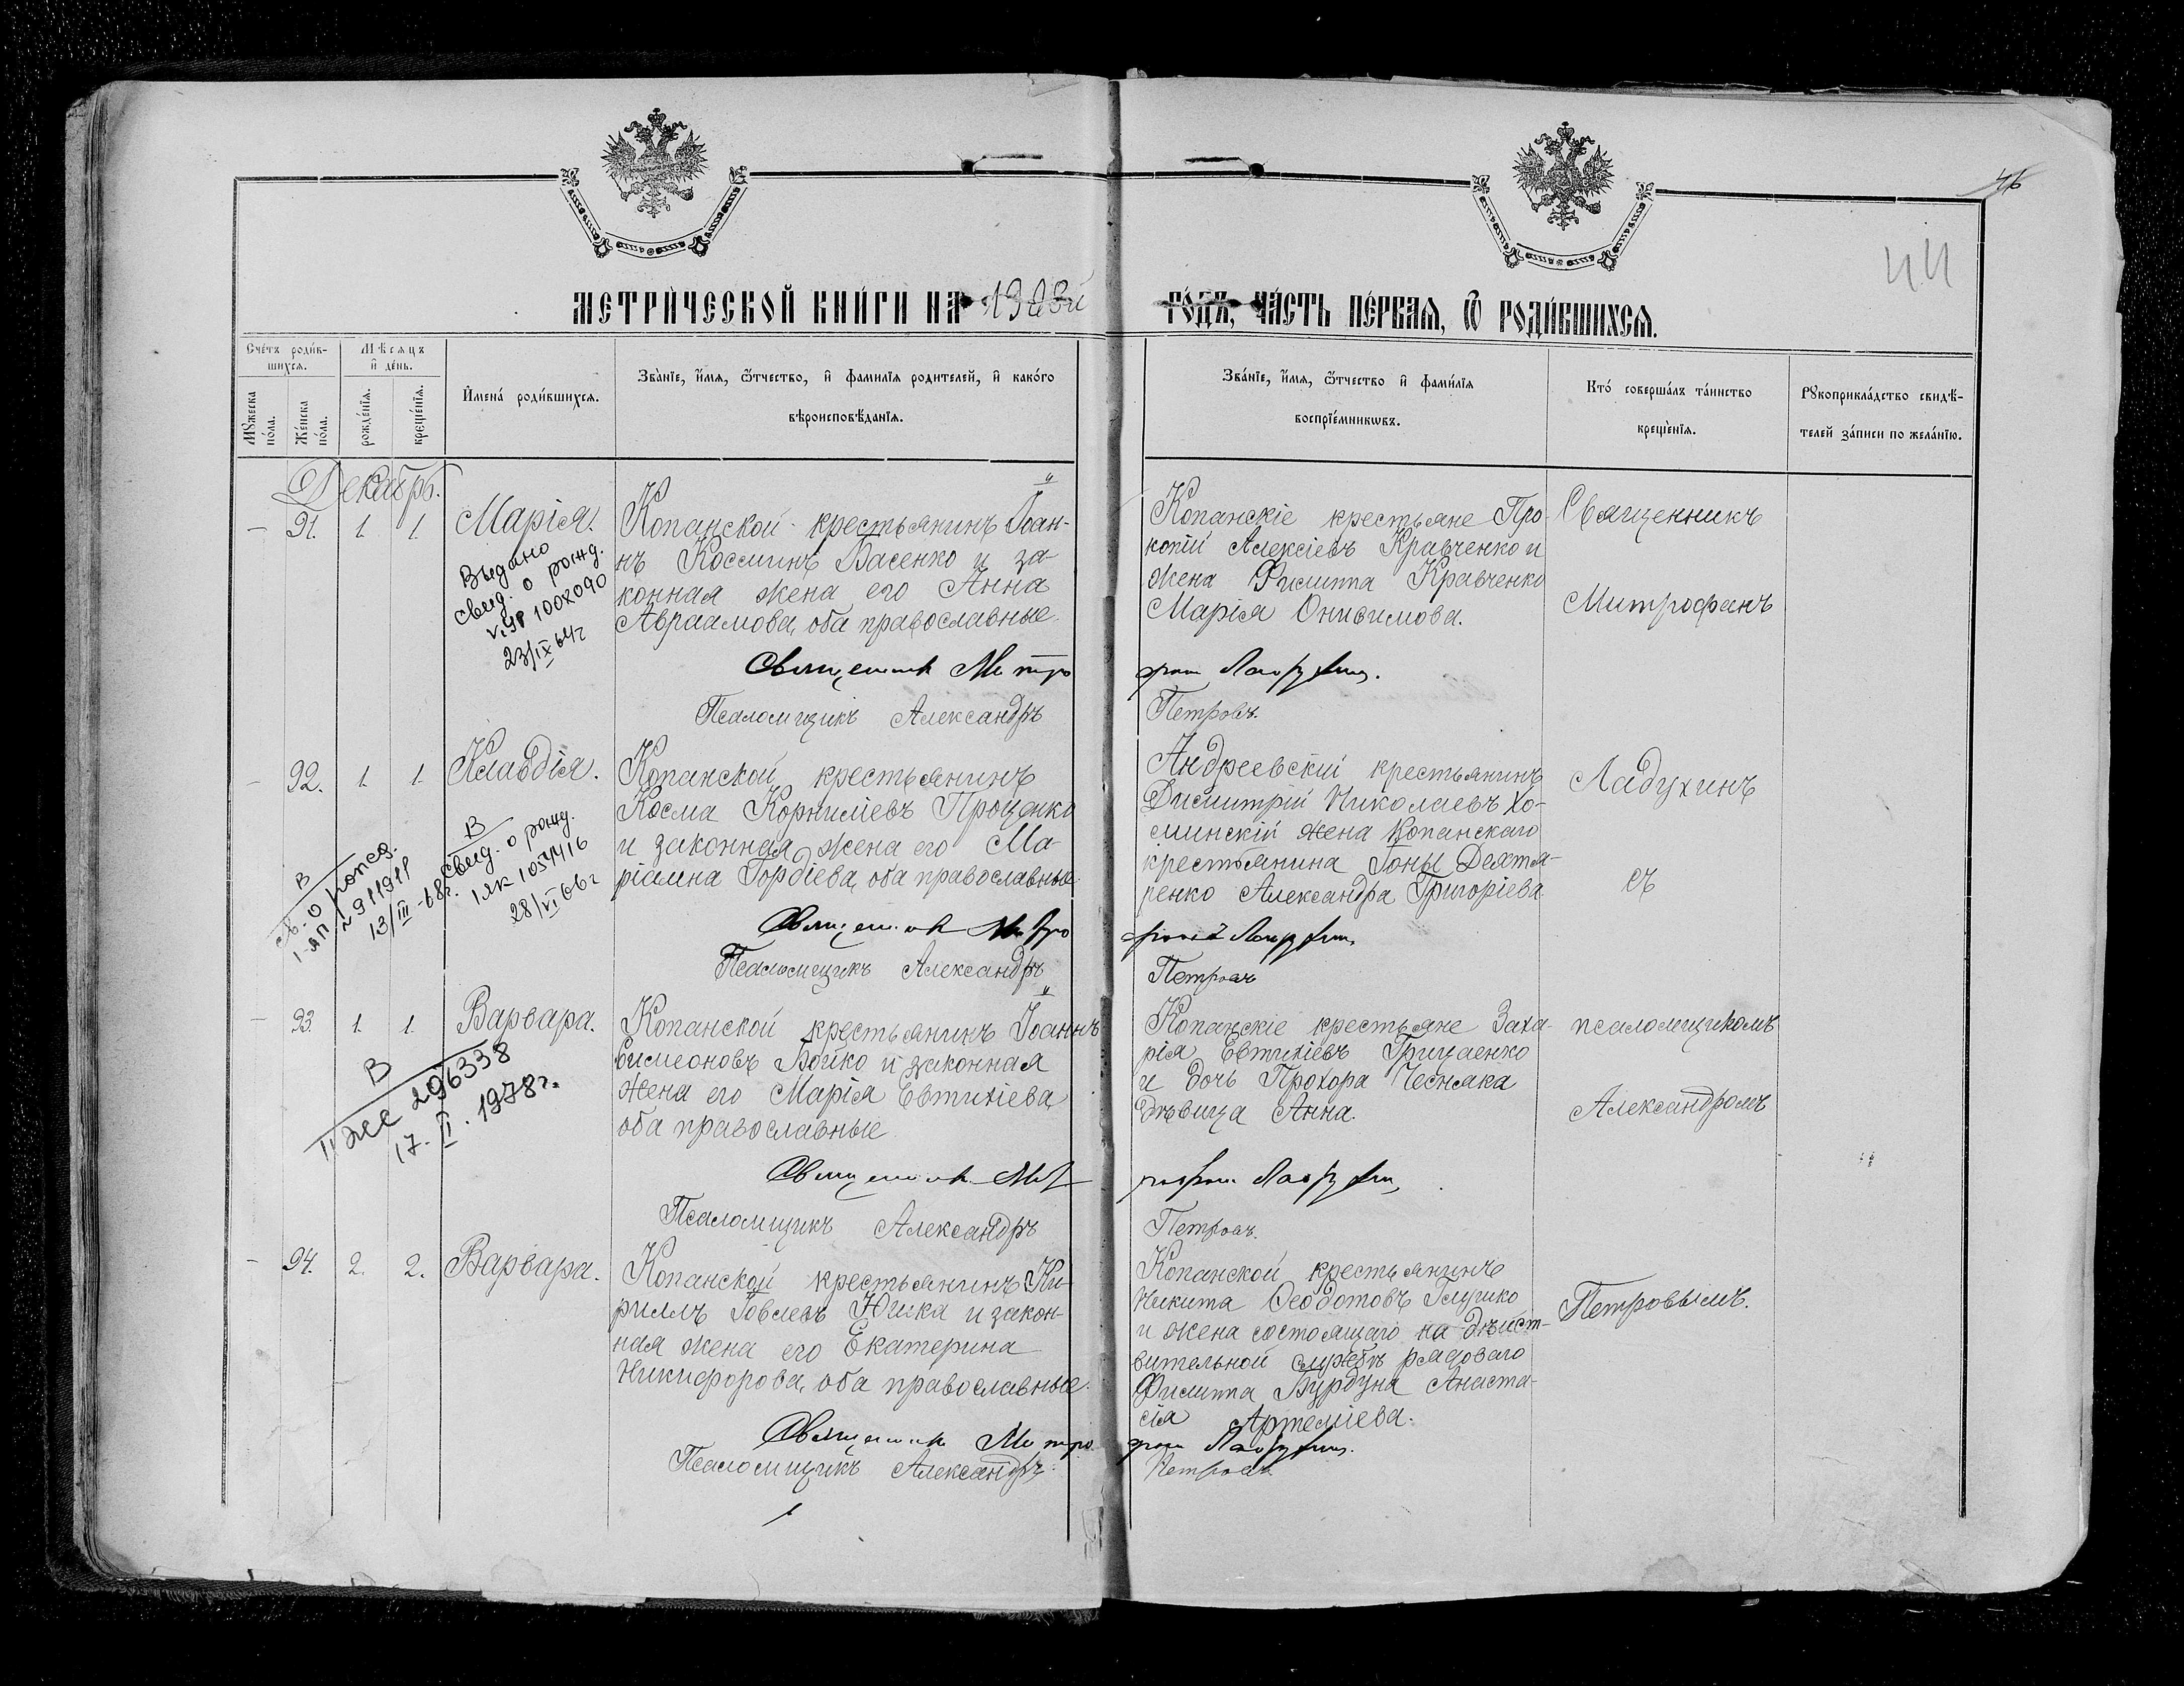 46
44
МЕТРИЧЕСКОЙ КНИГИ НА 1903й ГОДЪ, ЧАСТЬ ПЕРВАЯ, Ѿ РОДИВШИХСЯ.
Счетъ родив-
шихся.
Мужеска
пола.
Женска
пола.
Мѣсяцъ
и день.
рожденія.
крещенія.
Имена родившихся.
Званіе, имя, ѿтчество, и фамилія родителей, и какого
вѣроисповѣданія.
Званіе, имя, ѿтчество и фамилія
воспріемникѡвъ.
Кто совершалъ таинство
крещенія.
Рукоприкладство свидѣ-
телей записи по желанію.
Декабрь.
91. 1. 1. Марія.
Выдано
свид. о рожд.
100X090
23/IX 64г
Копанской крестьянинъ Іоан-
нъ Косминъ Васенко и за-
конная жена его Анна
Авраамова, оба православные.
Копанскіе крестьяне Про-
копій Алексіевъ Кравченко и
жена Филиппа Кравченко
Марія Онисимова.
Священникъ
Митрофанъ
Священникъ Митрофан Ладухин.
Псаломщикъ Александръ Петровъ.
92. 1. 1. Клавдія.
В
свид. о рожд.
1 ЯК 1054416
28/VI 66г
В
13/III-68г.
Копанской крестьянинъ
Косма Корниліевъ Проценко
и законная жена его Ма-
ріамна Гордіева, оба православные.
Андреевскій крестьянинъ
Димитрій Николаевъ Хо-
минскій жена Копанскаго
крестьянина Іоны Дехтя-
ренко Александра Григоріева
Ладухинъ
съ
Священникъ Митрофан Ладухин.
Псаломщикъ Александръ Петровъ
93. 1. 1. Варвара.
В
II ЖС 296338
17. II. 1978г.
Копанской крестьянинъ Іоаннъ
Симеоновъ Бойко и законная
жена его Марія Евтихіева,
оба православные
Копанскіе крестьяне Заха-
рія Евтихіевъ Грицаенко
и дочь Прохора Чесняка
дѣвица Анна.
псаломщикомъ
Александромъ
Священникъ Митрофан Ладухин
Псаломщикъ Александръ Петровъ.
94. 2. 2. Варвара.
Копанской крестьянинъ Ки-
риллъ Іовлевъ Юшка и закон-
ная жена его Екатерина
Никифорова, оба православные.
Копанской крестьянинъ
Никита Ѳеодотовъ Глушко
и жена состоящаго на дѣйст-
вительной службѣ рядоваго
Филиппа Бурдуна Анаста-
сія Артеміева.
Петровымъ.
Священникъ Митрофан Ладухин.
Псаломщикъ Александръ Петровъ